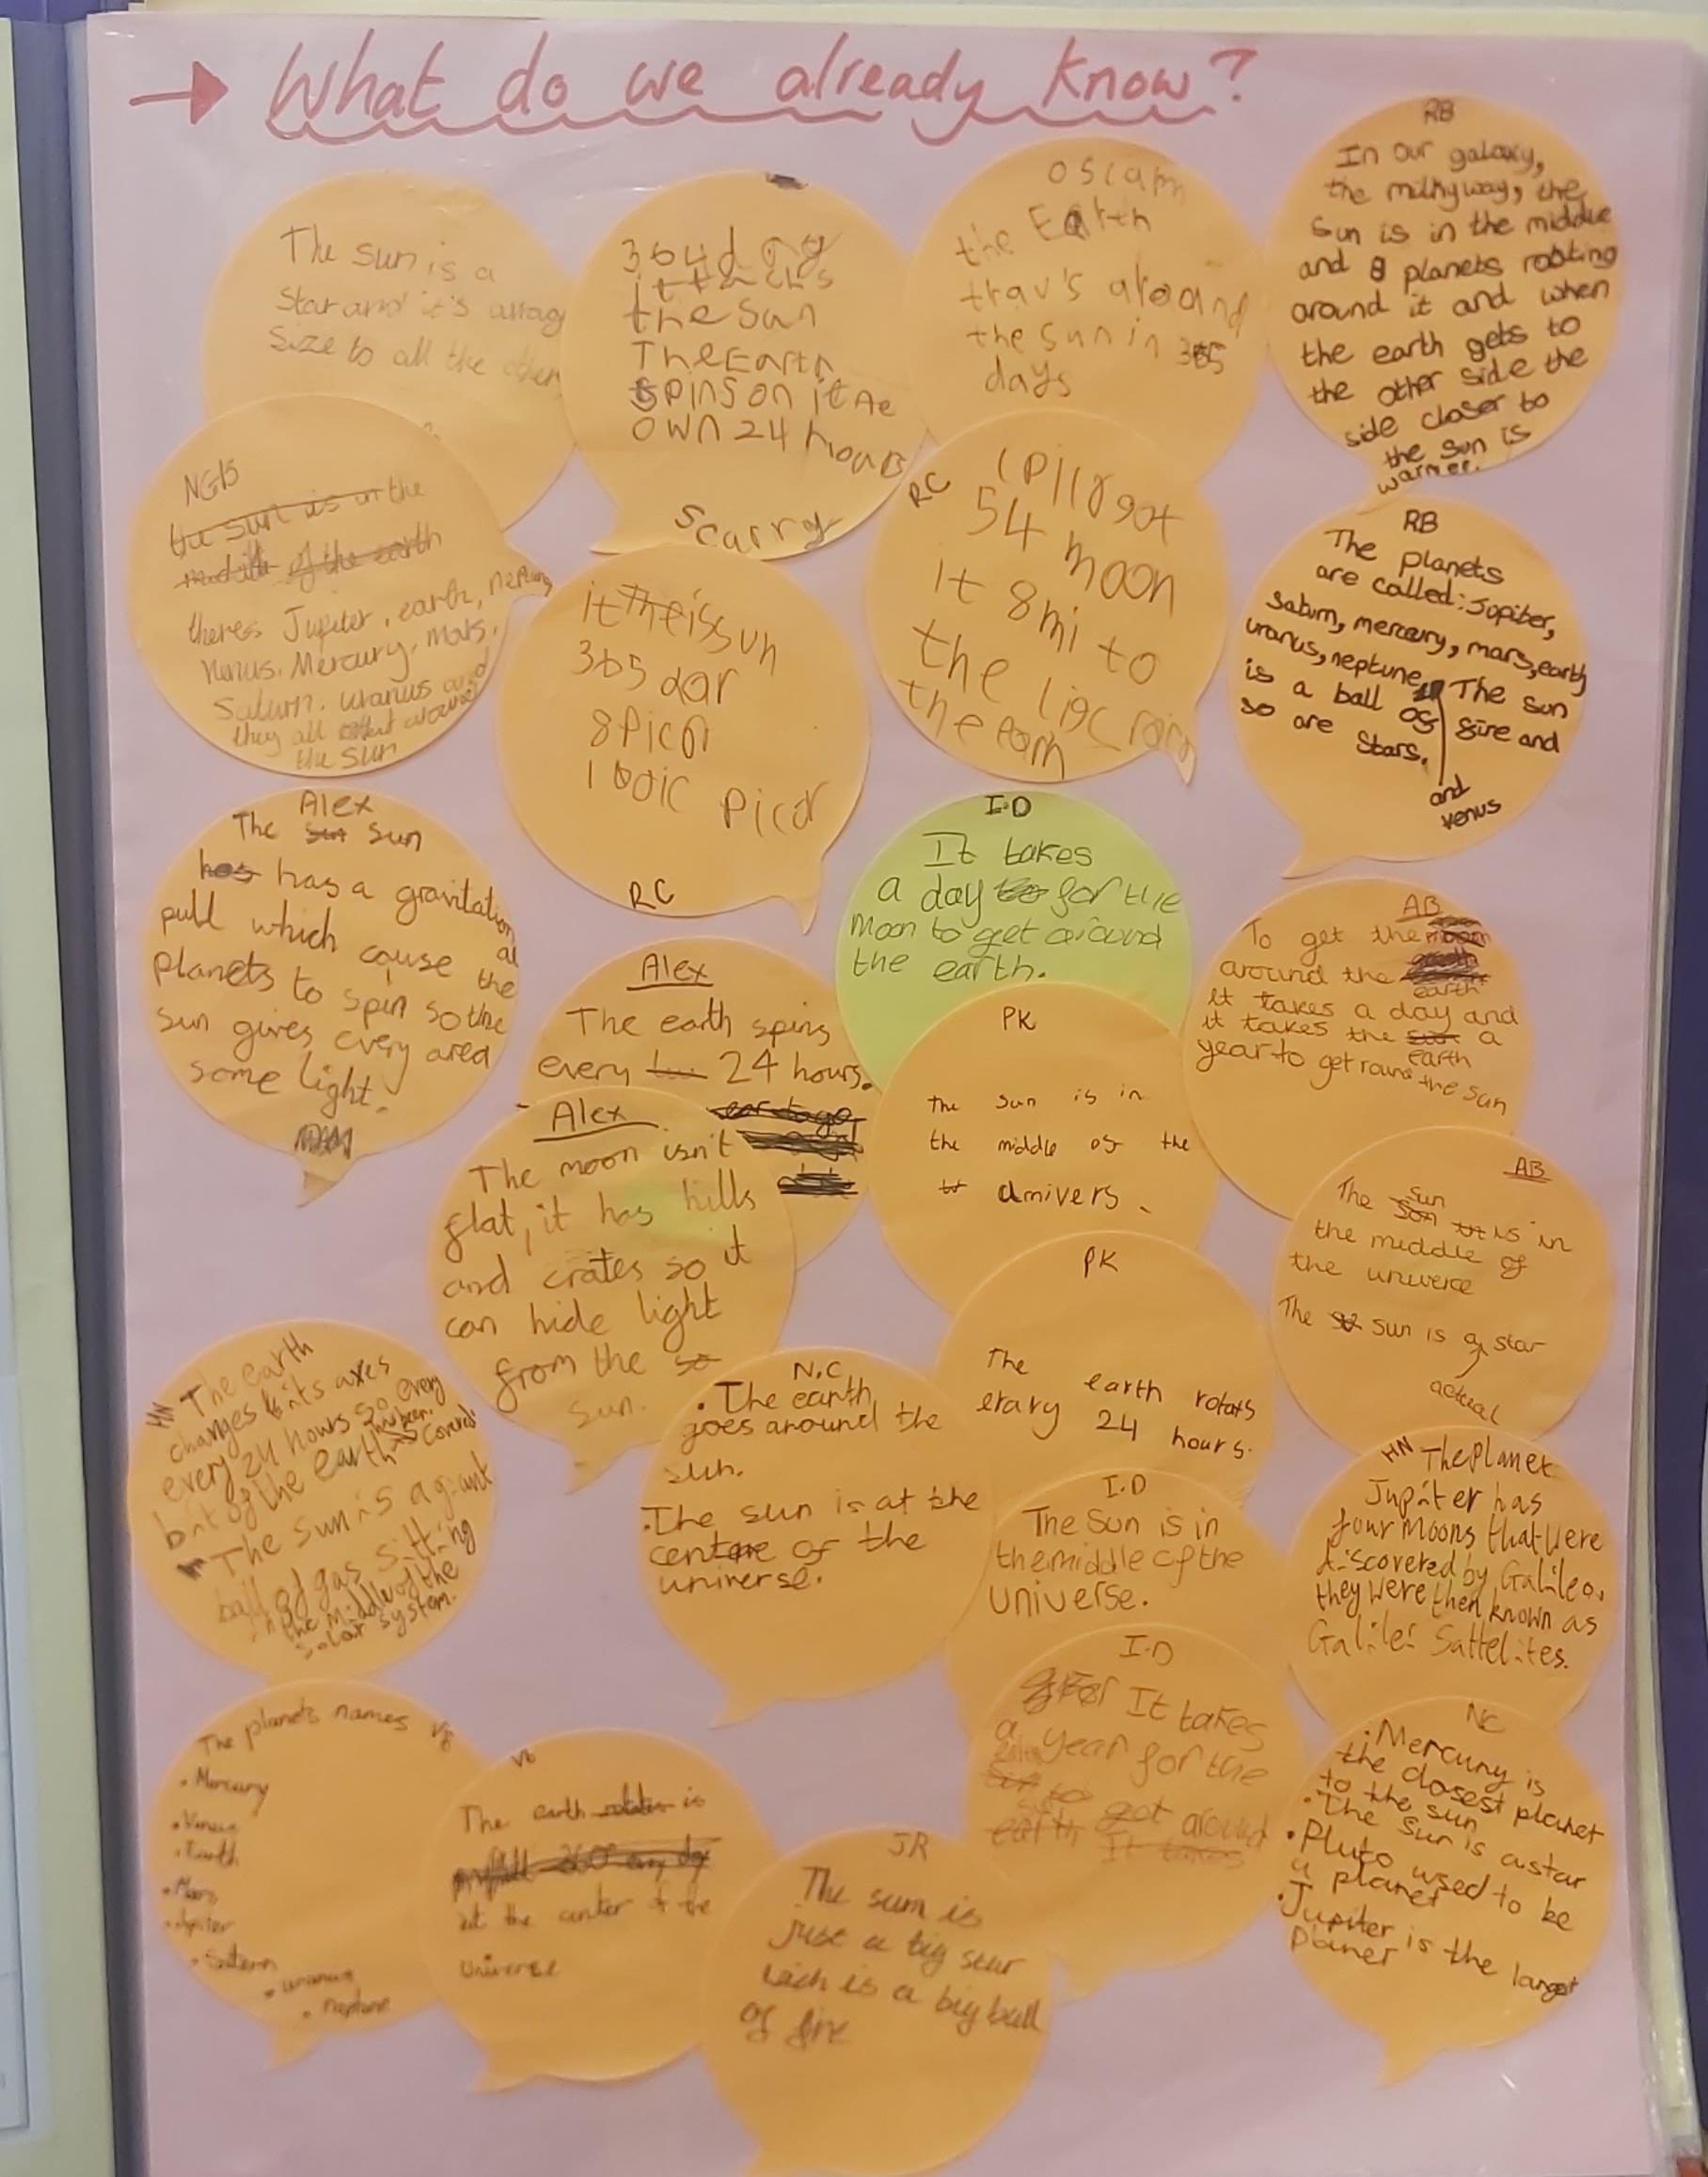 → What do we already know?
The sun is a
star and it's
size to all the other
364 day
the sun
The Earth
spins on it
own 24 hours
scarry
oscar
the Earth
trav's aroand
the sun in 365
days
RB
In our galaxy,
the milkyway, the
Sun is in the middle
and 8 planets
around it and when
the earth gets to
the other side the
side closer to
the sun is
warmer.
NGB
the sun is in the
middle of the earth
theres Jupiter, earth, neptune
Venus. Mercury. Mars.
Saturn. uranus and
they all orbit around
the sun
it
365
RC
RC
got
54 moon
it 8mi to
the
the
RB
The planets
are called: Jupiter,
Saturn, mercury, mars, earth
uranus, neptune The Sun
is a ball of fire and
so are stars.
and
venus
Alex
The sun sun
has has a gravitational
pull which couse the
planets to spin so the
sun gives every area
some light.
Alex
The earth spins
every 24 hours.
Alex
The moon isn't
flat, it has hills
and crates so it
can hide light
from the so
sun.
I.D
It takes
a day to for the
Moon to get around
the earth.
AB
To get the moon
around the
earth
it takes a day and
it takes the sun a
earth
year to get round the sun
PK
the sun is in
the middle of the
univers.
PK
The earth rotats
erary 24 hours.
AB
The Son sun is in
the middle of
the univerce
The sun is a star
actual
HN The earth
changes its axes
every 24 hours so every
bit of the earth has been covered.
The Sun is a giant
ball of gas sitting
in the middle of the
solar system.
N.C
• The earth
goes around the
sun.
• The sun is at the
centre of the
universe.
I.D
The Sun is in
the middle of the
Universe.
HN The Planet
Jupiter has
four Moons that Were
discovered by Galileo,
they were then known as
Galilei Sattelites.
I.D
It takes
a year for the
earth to get around
It takes
NC
• Mercury is
the closest planet
to the sun
• The sun is a star
• Pluto used to be
a planet
• Jupiter is the largest
planet
The planets names VB
• Mercury
• Venus
• Earth
• Mars
• Jupiter
• Saturn
• uranus
• neptune
VB
The earth rotates is
360° every day
at the center of the
universe
JR
The sun is
just a big star
wich is a big ball
of fire